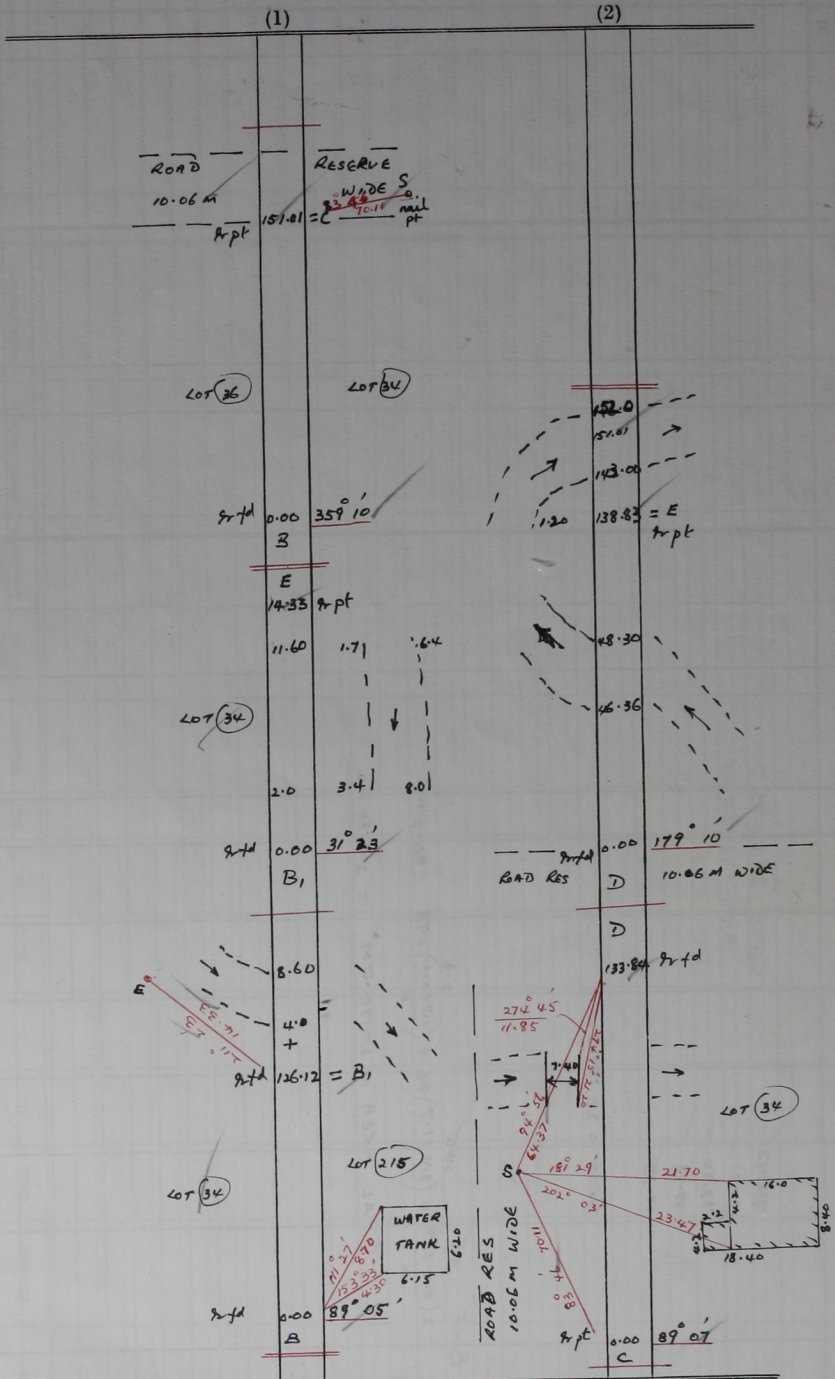 (1)
ROAD RESERVE
10.06 M WIDE S
nail pt
70.11
r pt 151.01 = C
LOT 36
LOT 34
r fd 0.00 359° 10'
B
E
14.33 r pt
11.60 1.7 6.4
LOT 34
2.0 3.4 8.0
r fd 0.00 31° 23'
B1
8.60
E
14.33
211° 23'
4.0
+
r fd 126.12 = B1
LOT 215
LOT 34
WATER TANK
6.20
6.15
8.70
153° 33'
4.30
r fd 0.00 89° 05'
B
(2)
151.01
143.00
1.20 138.83 = E
r pt
48.30
46.36
r fd 0.00 179° 10'
ROAD RES D 10.06 M WIDE
D
133.84 r fd
274° 45'
11.85
7.40
94° 56'
64.37
LOT 34
S
181° 29' 21.70
202° 03' 23.47
16.0
4.2
8.40
18.40
ROAD RES
10.06 M WIDE
70.11
83° 46'
r pt 0.00 89° 07'
C